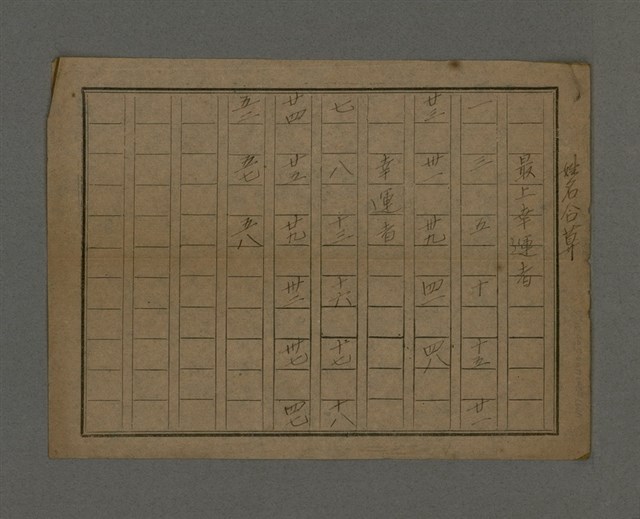 姓名公草
最上幸運者
一 三 五 十 十五 廿一
廿三 卅一 卅九 四一 四八
幸運者
七 八 十三 十六 十七 十八
廿四 廿五 廿九 卅三 卅七 四七
五二 五七 五八